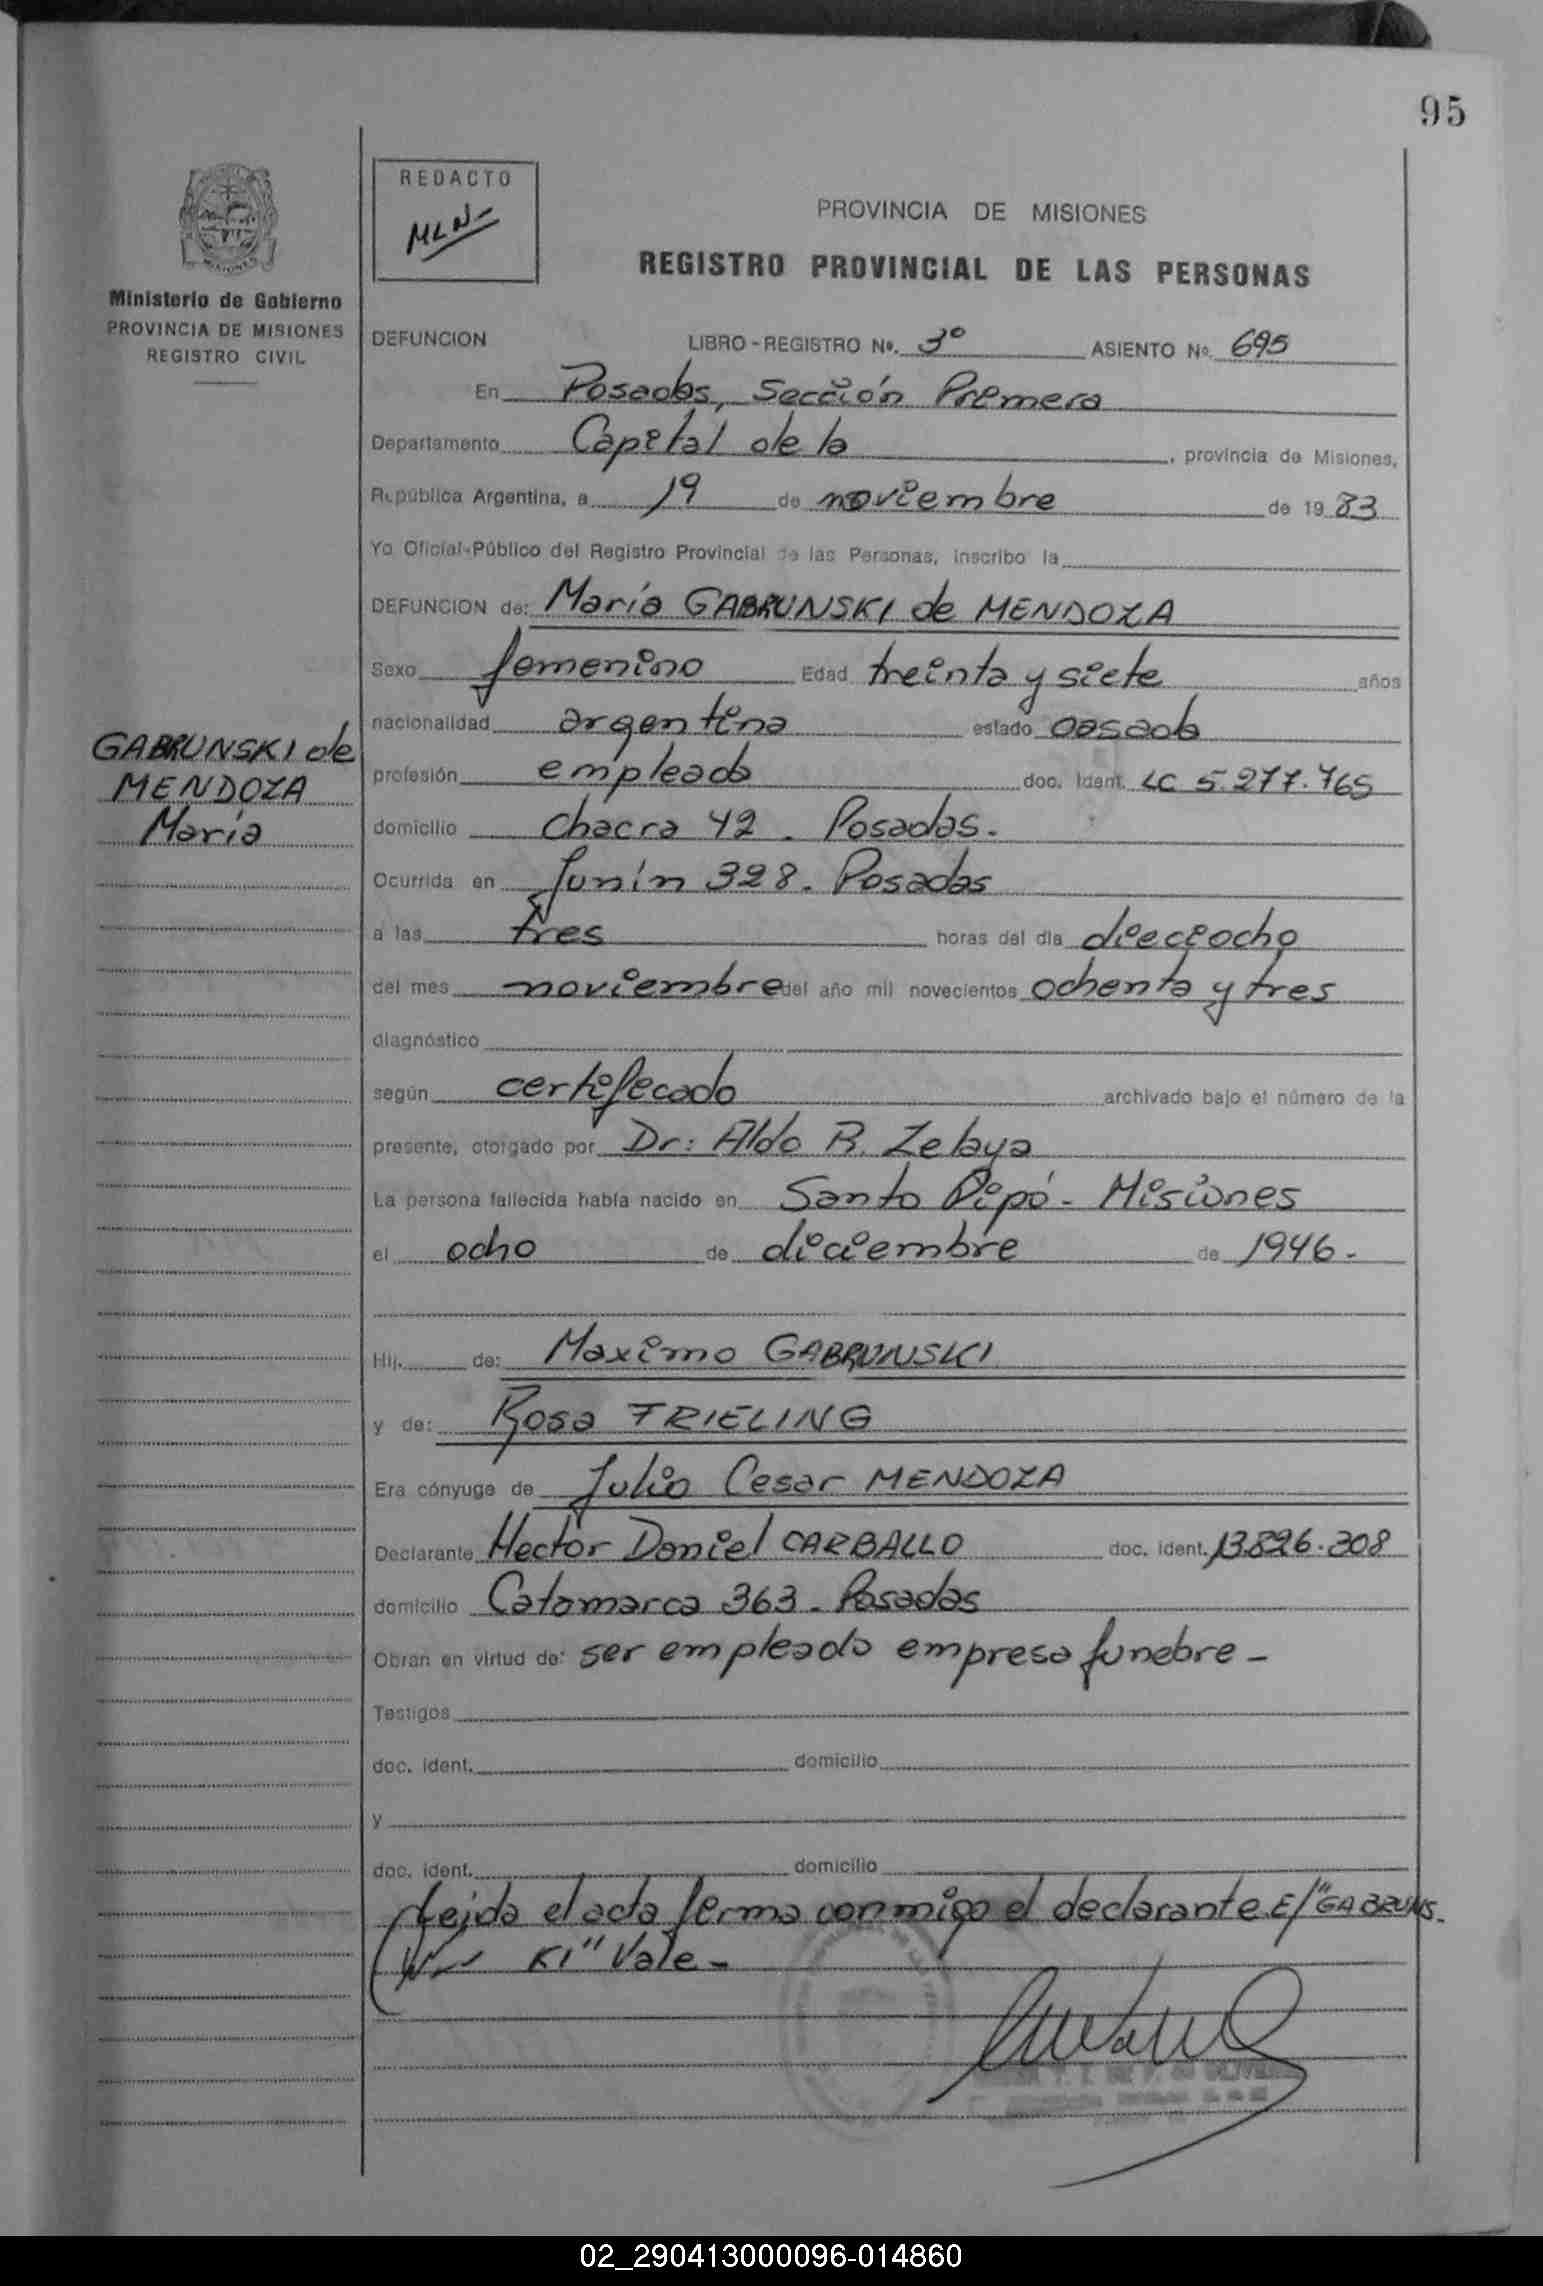 95
REDACTO
MLN-
PROVINCIA DE MISIONES
REGISTRO PROVINCIAL DE LAS PERSONAS
MISIONES
Ministerio de Gobierno
PROVINCIA DE MISIONES
REGISTRO CIVIL
DEFUNCION LIBRO - REGISTRO Nº. 3º ASIENTO Nº. 695
En Posadas, Sección Primera
Departamento Capital de la , provincia de Misiones,
República Argentina, a 19 de noviembre de 1983
Yo Oficial-Público del Registro Provincial de las Personas, inscribo la
DEFUNCION de: María GABRUNSKI de MENDOZA
Sexo femenino Edad treinta y siete años
nacionalidad argentina estado casada
GABRUNSKI de
MENDOZA
María
profesión empleada doc. Ident. LC 5.277.765
domicilio Chacra 42. Posadas.
Ocurrida en Junín 328. Posadas
a las tres horas del día dieciocho
del mes noviembre del año mil novecientos ochenta y tres
diagnóstico
según certificado archivado bajo el número de la
presente, otorgado por Dr: Aldo R. Zelaya
La persona fallecida había nacido en Santo Pipó - Misiones
el ocho de diciembre de 1946.
Hij. de: Maximo GABRUNSKI
y de: Rosa FRIELING
Era cónyuge de Julio Cesar MENDOZA
Declarante Hector Daniel CARBALLO doc. ident. 13.826.308
domicilio Catamarca 363 - Posadas
Obran en virtud de: ser empleado empresa funebre -
Testigos
doc. ident. domicilio
y
doc. ident. domicilio
Leida el acta firma conmigo el declarante. E/"GABRUNS-
KI" Vale -
02_290413000096-014860